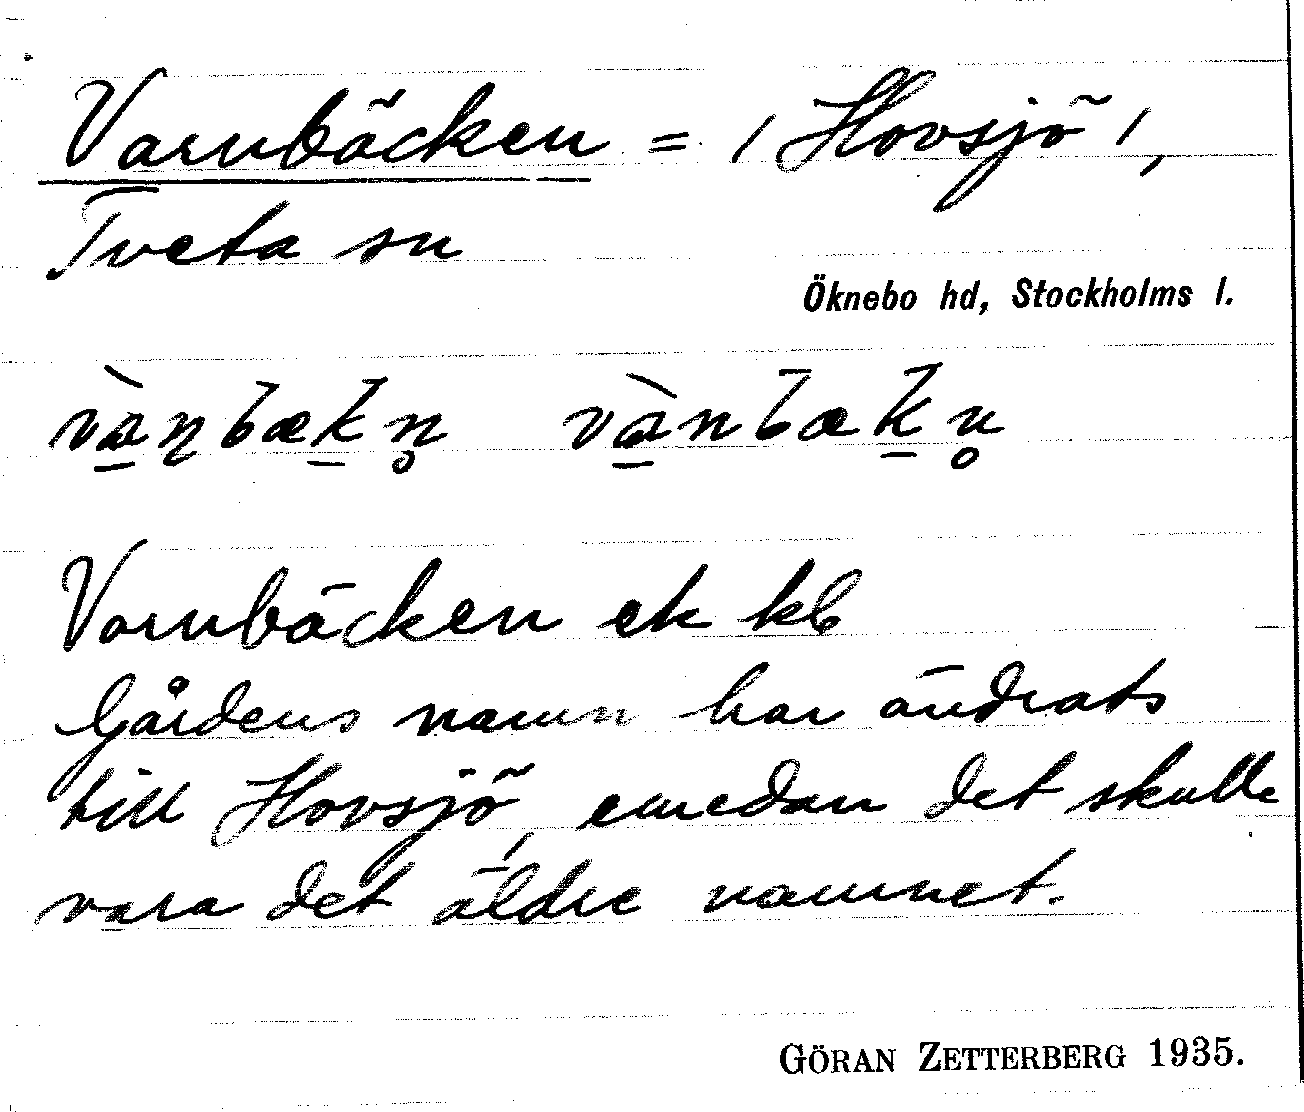 Varnbäcken = / Hovsjö /,
Tveta sn
Öknebo hd, Stockholms l.
Varnbäcken ek kb
Gårdens namn har ändrats
till Hovsjö, emedan det skulle
vara det äldre namnet.
GÖRAN ZETTERBERG 1935.